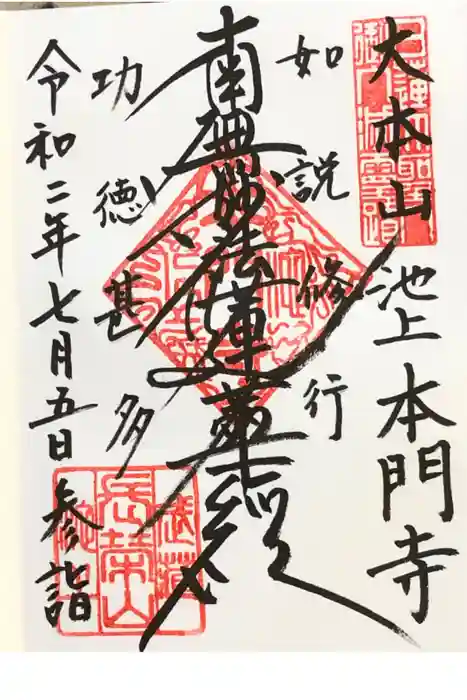 大本山 池上本門寺
如説修行
南無妙法蓮華経
功徳甚多
令和二年七月五日 参詣